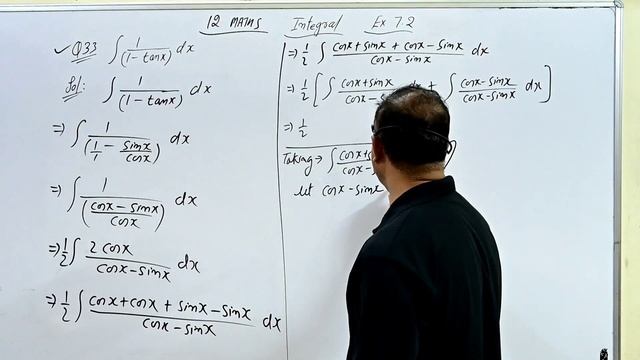 12 MATHS Integral Ex 7.2
✓ Q33 ∫ 1/(1 - tanx) dx
Sol: ∫ 1/(1 - tanx) dx
⇒ ∫ 1/(1/1 - sinx/cosx) dx
⇒ ∫ 1/((cosx - sinx)/cosx) dx
⇒ 1/2 ∫ 2 cosx/(cosx - sinx) dx
⇒ 1/2 ∫ (cosx + cosx + sinx - sinx)/(cosx - sinx) dx
⇒ 1/2 ∫ (cosx + sinx + cosx - sinx)/(cosx - sinx) dx
⇒ 1/2 [∫ (cosx + sinx)/(cosx - dx + ∫ (cosx - sinx)/(cosx - sinx) dx]
⇒ 1/2
Taking → ∫ cosx + / cosx -
let cosx - sinx